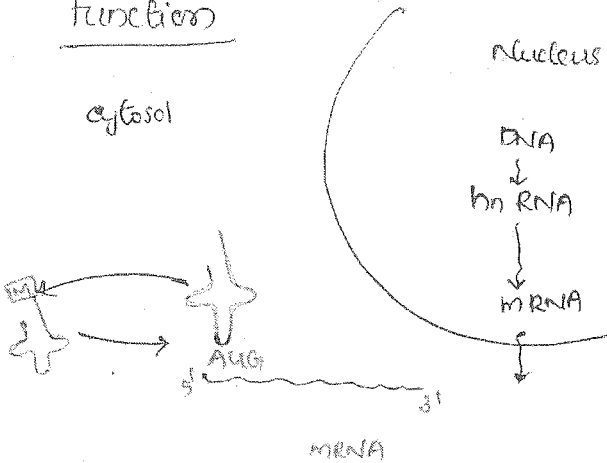 Function
Cytosol
Nucleus
DNA
hn RNA
mRNA
M
AUG
5'
3'
mRNA